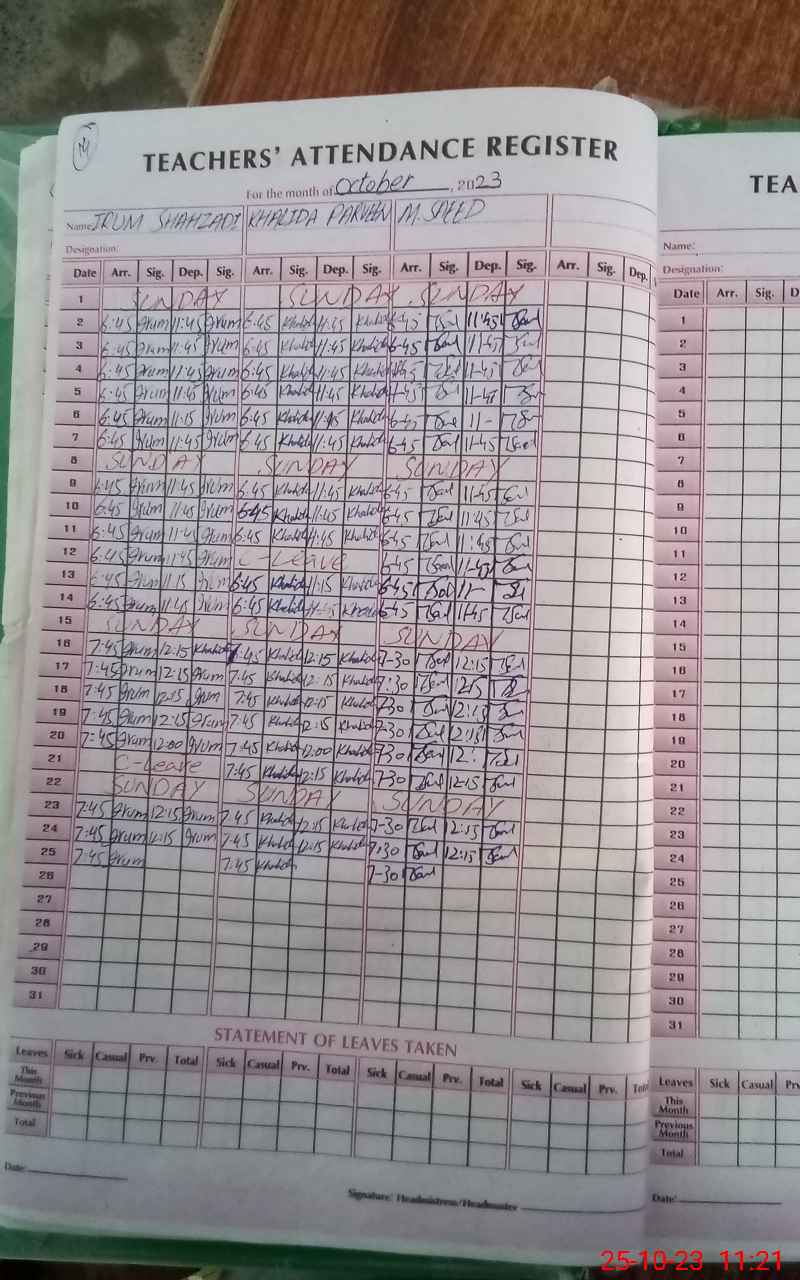 14
TEACHERS' ATTENDANCE REGISTER
For the month of October, 2023
Name: IRUM SHAHZADI KHALIDA PARVEEN M. SAEED
Designation:
Date Arr. Sig. Dep. Sig. Arr. Sig. Dep. Sig. Arr. Sig. Dep. Sig. Arr. Sig. Dep.
1 SUNDAY SUNDAY SUNDAY
2 6:45 Irum 11:45 Irum 6:45 Khalid 11:45 Khalid 6-45 11-45
3 6:45 Irum 11:45 Irum 6:45 Khalid 11:45 Khalid 6-45 11-45
4 6:45 Irum 11:45 Irum 6:45 Khalid 11:45 Khalid 11-45
5 6:45 Irum 11:45 Irum 6:45 Khalid 11:45 Khalid 11-45
6 6:45 Irum 11:15 Irum 6:45 Khalid 11:15 Khalid 6-45 11-
7 6:45 Irum 11:45 Irum 6:45 Khalid 11:45 Khalid 6-45 11-45
8 SUNDAY SUNDAY SUNDAY
9 6:45 Irum 11:45 Irum 6:45 Khalid 11:45 Khalid 6-45 11-45
10 6:45 Irum 11:45 Irum 6:45 Khalid 11:45 Khalid 6-45 11:45
11 6:45 Irum 11:45 Irum 6:45 Khalid 11:45 Khalid 6-45 11:45
12 6:45 Irum 11:45 Irum C-Leave 6-45 11-45
13 6:45 Irum 11:15 Irum 6:45 Khalid 11:15 Khalid 6-45 11-
14 6:45 Irum 11:45 Irum 6:45 Khalid Khalid 6-45 11-45
15 SUNDAY SUNDAY SUNDAY
16 7:45 Irum 12:15 Khalid 7:45 Khalid 12:15 Khalid 7-30 12:15
17 7:45 Irum 12:15 Irum 7:45 Khalid 12:15 Khalid 7:30 12:15
18 7:45 Irum 12:15 Irum 7:45 Khalid 12:15 Khalid 7-30 12:15
19 7:45 Irum 12:15 Irum 7:45 Khalid 12:15 Khalid 7-30 12:15
20 7:45 Irum 12:00 Irum 7:45 Khalid 12:00 Khalid 7-30 12:
21 C-Leave 7:45 Khalid 12:15 Khalid 7-30 12-15
22 SUNDAY SUNDAY SUNDAY
23 7:45 Irum 12:15 Irum 7:45 Khalid 12:15 Khalid 7-30 12:15
24 7:45 Irum 12:15 Irum 7:45 Khalid 12:15 Khalid 7:30 12:15
25 7:45 Irum 7:45 Khalid 7-30
26
27
28
29
30
31
STATEMENT OF LEAVES TAKEN
Leaves Sick Casual Prv. Total Sick Casual Prv. Total Sick Casual Prv. Total Sick Casual Prv.
This Month
Previous Month
Total
Date:
Signature: Headmistress/Headmaster
TEA
Name:
Designation:
Date Arr. Sig. D
1
2
3
4
5
6
7
8
9
10
11
12
13
14
15
16
17
18
19
20
21
22
23
24
25
26
27
28
29
30
31
Leaves Sick Casual
This Month
Previous Month
Total
Date:
25-10-23 11:21